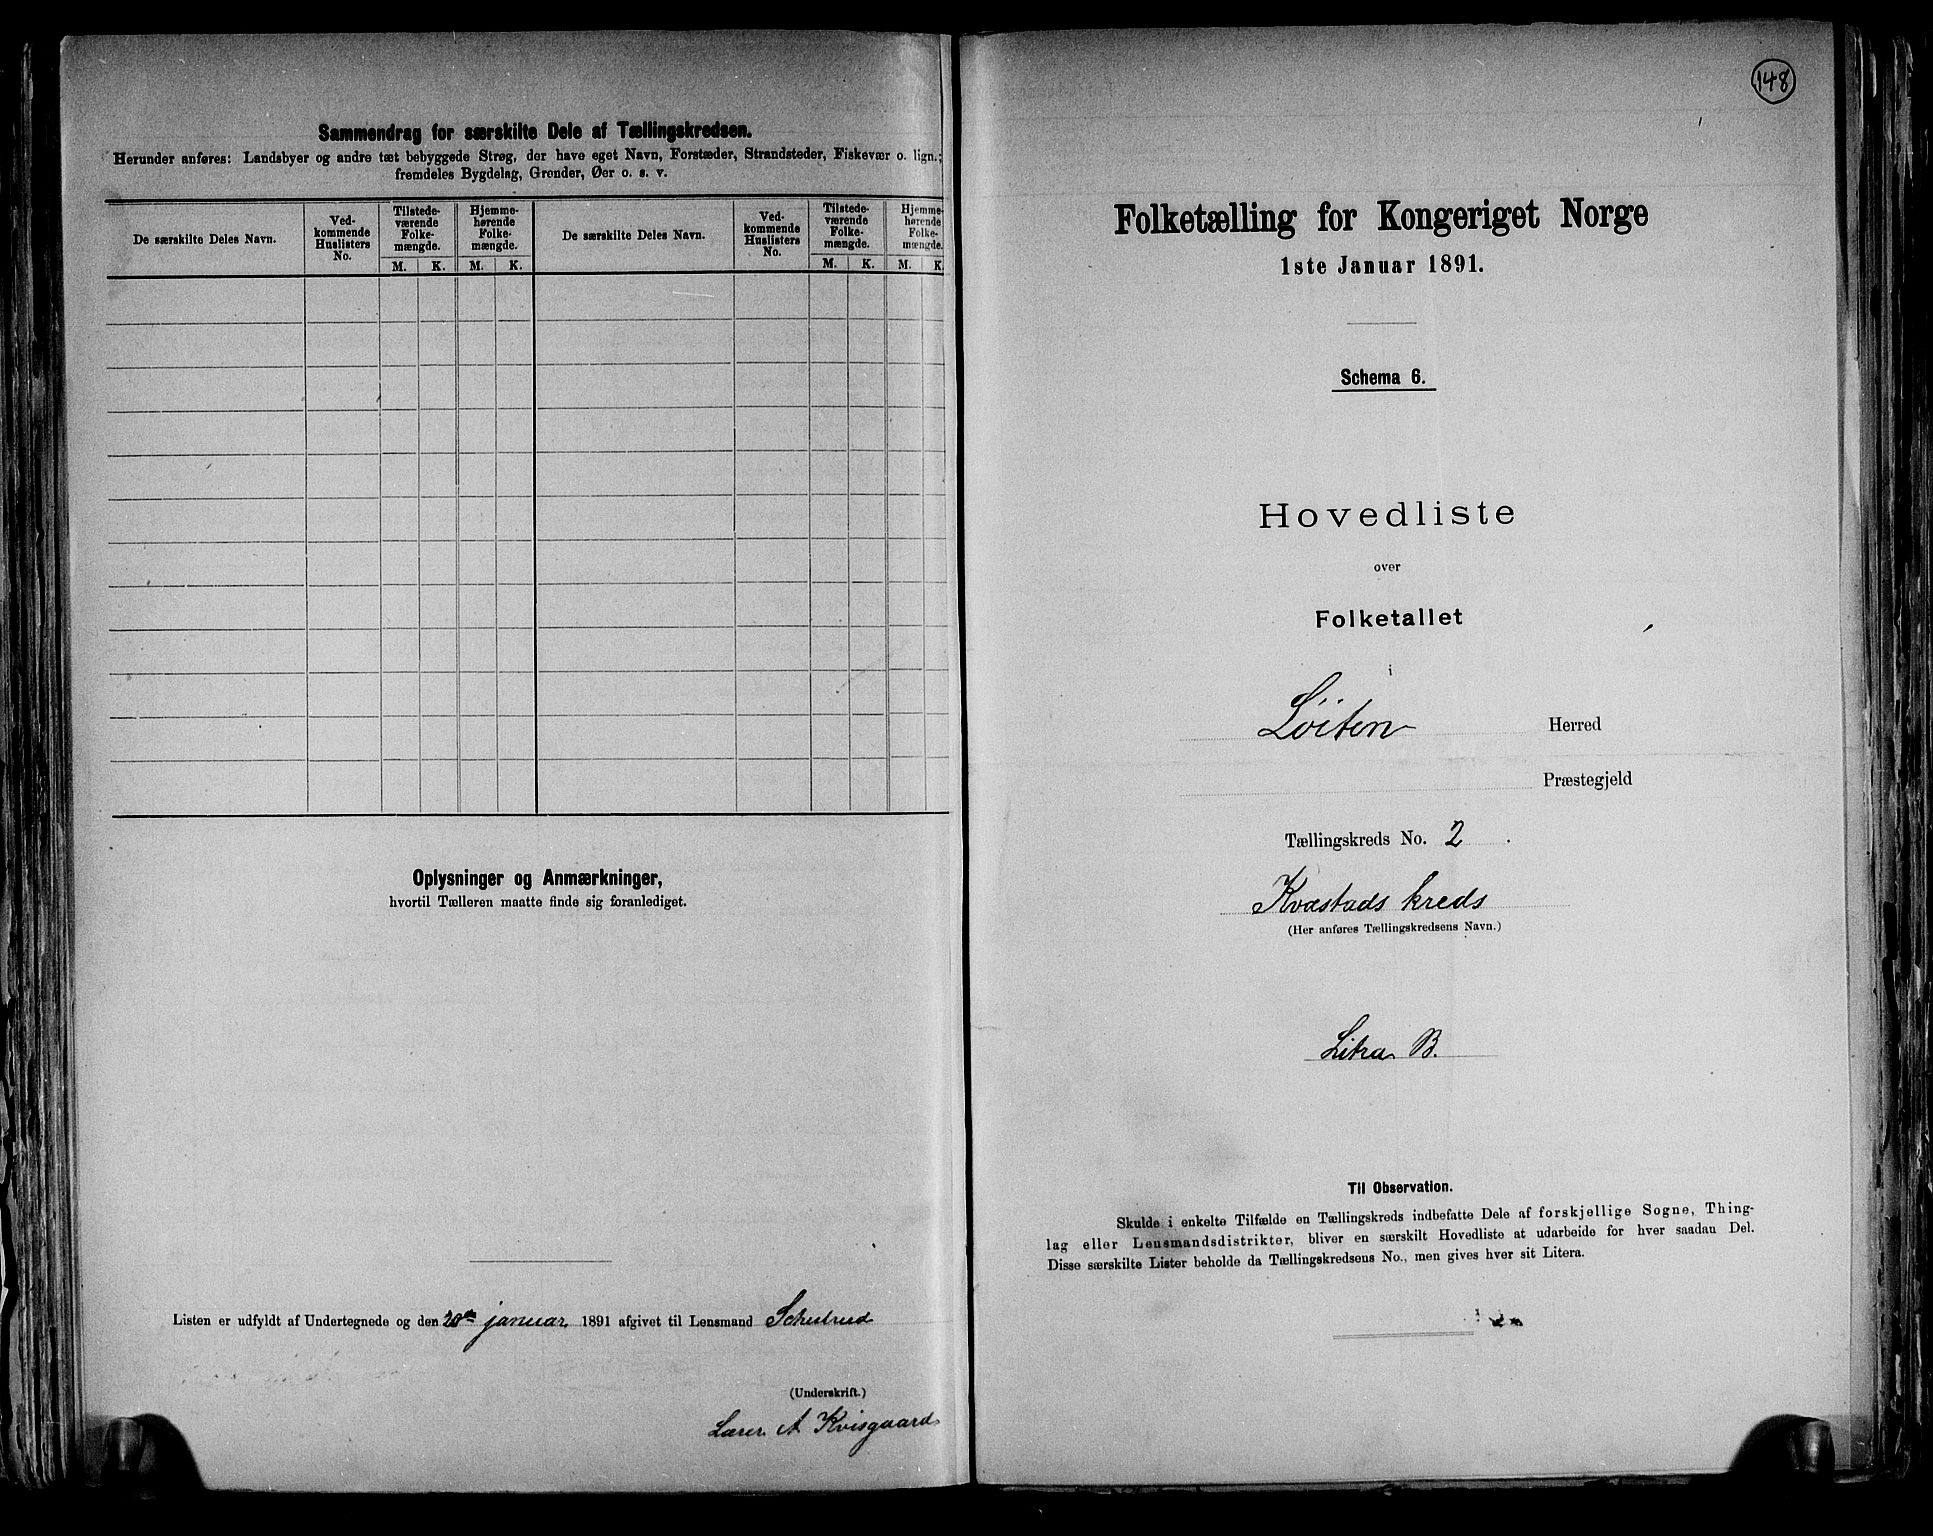 Sammendrag for særskilte Dele af Tællingskredsen.
Herunder anføres: Landsbyer og andre tæt bebyggede Strøg, der have eget Navn, Forstæder, Strandsteder, Fiskevær o. lign.;
fremdeles Bygdelag, Grender, Øer o. s. v.
De særskilte Deles Navn.
Ved-
kommende
Huslisters
No.
Tilstede-
værende
Folke-
mængde.
M. K.
Hjemme-
hørende
Folke-
mængde.
M. K.
De særskilte Deles Navn.
Ved-
kommende
Huslisters
No.
Tilstede-
værende
Folke-
mængde.
M. K.
Hjemme-
hørende
Folke-
mængde.
M. K.
Oplysninger og Anmærkninger,
hvortil Tælleren maatte finde sig foranlediget.
Listen er udfyldt af Undertegnede og den 20de januar 1891 afgivet til Lensmand Schulrud
(Underskrift.)
Lærer A Kvisgaard
148
Folketælling for Kongeriget Norge
1ste Januar 1891.
Schema 6.
Hovedliste
over
Folketallet
i
Løiten Herred
Præstegjeld
Tællingskreds No. 2
Kvæstads kreds
(Her anføres Tællingskredsens Navn.)
Litra B.
Til Observation.
Skulde i enkelte Tilfælde en Tællingskreds indbefatte Dele af forskjellige Sogne, Thing-
lag eller Lensmandsdistrikter, bliver en særskilt Hovedliste at udarbeide for hver saadan Del.
Disse særskilte Lister beholde da Tællingskredsens No., men gives hver sit Litera.